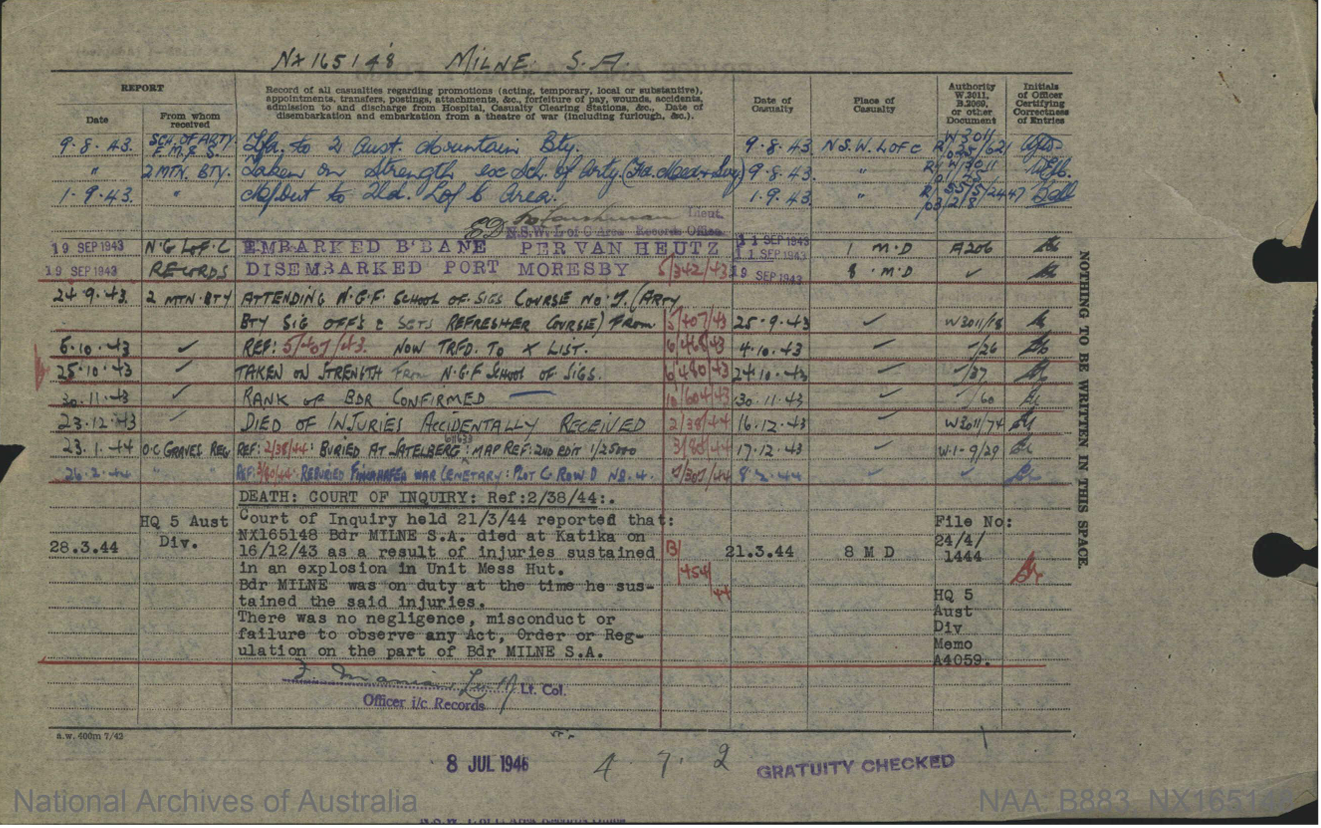 NX165148 MILNE S.A.
REPORT
Date
From whom received
Record of all casualties regarding promotions (acting, temporary, local or substantive), appointments, transfers, postings, attachments, &c., forfeiture of pay, wounds, accidents, admission to and discharge from Hospital, Casualty Clearing Stations, &c., Date of disembarkation and embarkation from a theatre of war (including furlough, &c.).
Date of Casualty
Place of Casualty
Authority W.3011, B.2069, or other Document
Initials of Officer Certifying Correctness of Entries
9.8.43. SCH. OF ARTY to 2 Aust. Mountain Bty. 9.8.43 N.S.W. L of C W3011
" 2 MTN. BTY. Taken on Strength Sch. of Arty. 9.8.43 "
1.9.43. to L of C Area. 1.9.43. "
Lieut.
N.S.W. L of C Area Records Office
19 SEP 1943 N.G L of C EMBARKED B'BANE PER VAN HEUTZ 11 SEP 1943 1 M.D A206
11 SEP 1943
19 SEP 1943 RECORDS DISEMBARKED PORT MORESBY 5/342/43 19 SEP 1943 8 . M.D ✓
24.9.43. 2 MTN. BTY ATTENDING N.G.F. SCHOOL OF SIGS COURSE No 7. (ARTY
BTY SIG OFF'S & SGTS REFRESHER COURSE) FROM 5/407/43 25.9.43 ✓ W3011/18
6.10.43 ✓ REF: 5/407/43. NOW TRFD. TO X LIST. 6/468/43 4.10.43 ✓ /26
25.10.43 TAKEN ON STRENGTH From N.G.F SCHOOL OF SIGS. 6/480/43 24.10.43 ✓ /37
30.11.43 RANK OF BDR CONFIRMED 10/604/43 30.11.43 /60
23.12.43 DIED OF INJURIES ACCIDENTALLY RECEIVED 2/38/44 16.12.43 ✓ W3011/74
23.1.44 O.C GRAVES REG REF: 2/38/44: BURIED AT SATELBERG: MAP REF: 2ND EDIT 1/25000 3/80/44 17.12.43 ✓ W.1-9/29
26.2.44 " " REF: 3/80/44. REBURIED FINSCHAFEN WAR CEMETARY: PLOT C ROW D No. 4. 5/307/44 8.2.44
DEATH: COURT OF INQUIRY: Ref:2/38/44:.
28.3.44
HQ 5 Aust
Div.
Court of Inquiry held 21/3/44 reported that:
NX165148 Bdr MILNE S.A. died at Katika on
16/12/43 as a result of injuries sustained
in an explosion in Unit Mess Hut.
Bdr MILNE was on duty at the time he sus-
tained the said injuries.
There was no negligence, misconduct or
failure to observe any Act, Order or Reg-
ulation on the part of Bdr MILNE S.A.
B/454/44
21.3.44
8 M D
File No:
24/4/
1444
HQ 5
Aust
Div
Memo
A4059.
Lt. Col.
Officer i/c Records
NOTHING TO BE WRITTEN IN THIS SPACE.
a.w. 400m 7/42
8 JUL 1946
4 7 2
GRATUITY CHECKED
National Archives of Australia
NAA: B883, NX165148